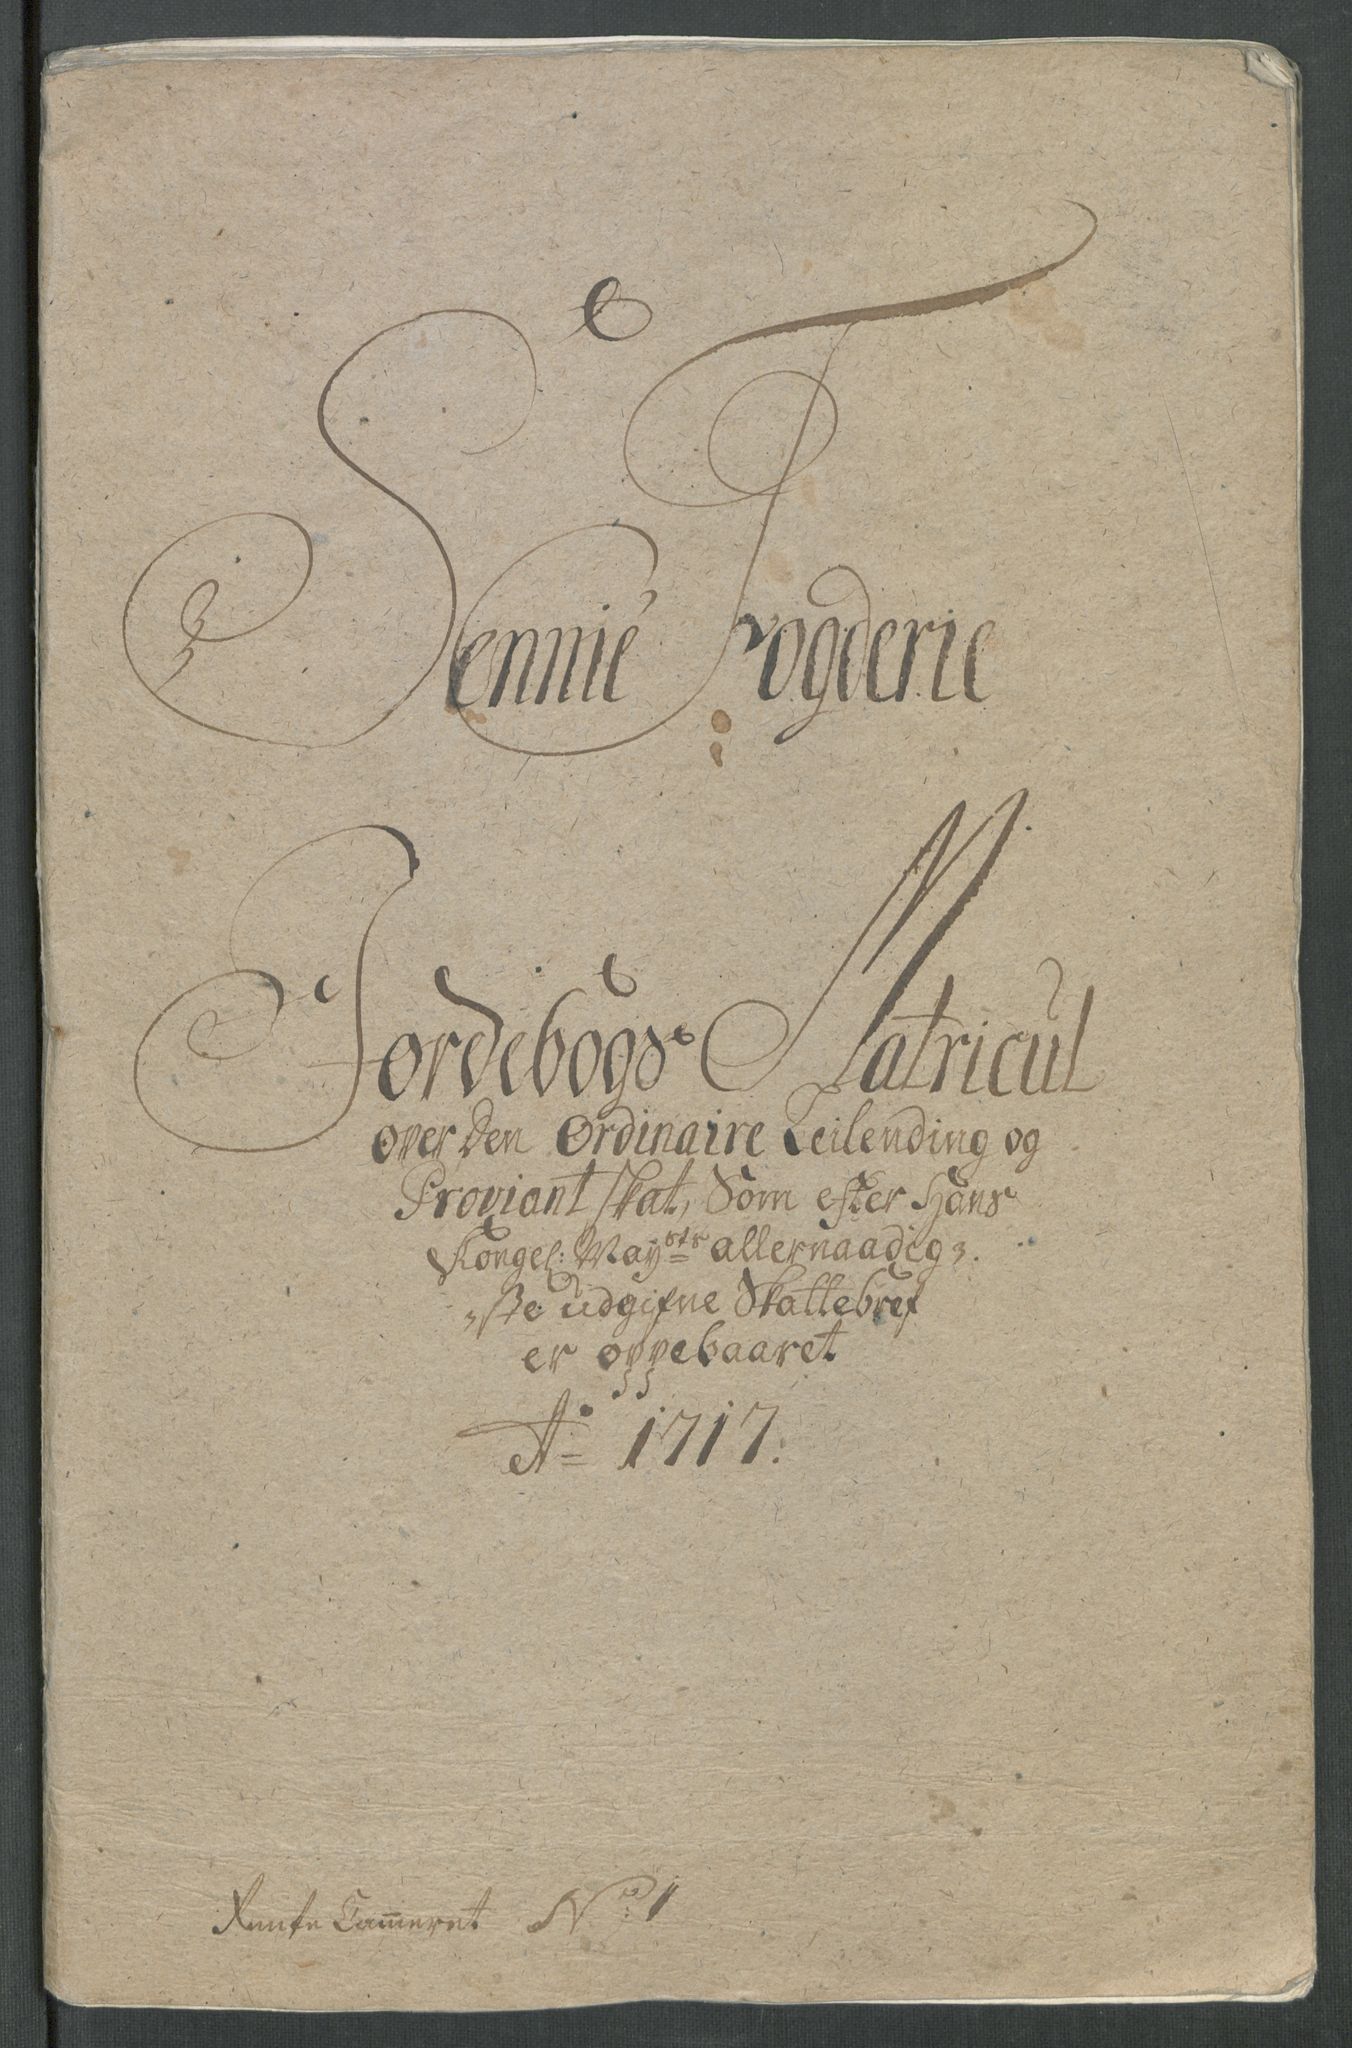 Sennie Fogderie
Jordebogs Matricul
over den Ordinaire Leilending og
Proviant skat, Som efter Hans
Kongel: May:sts allernaadig=
=ste udgifne Skattebref
er oppebaaret
A:o 1717.
Rente Cammeret No: 1